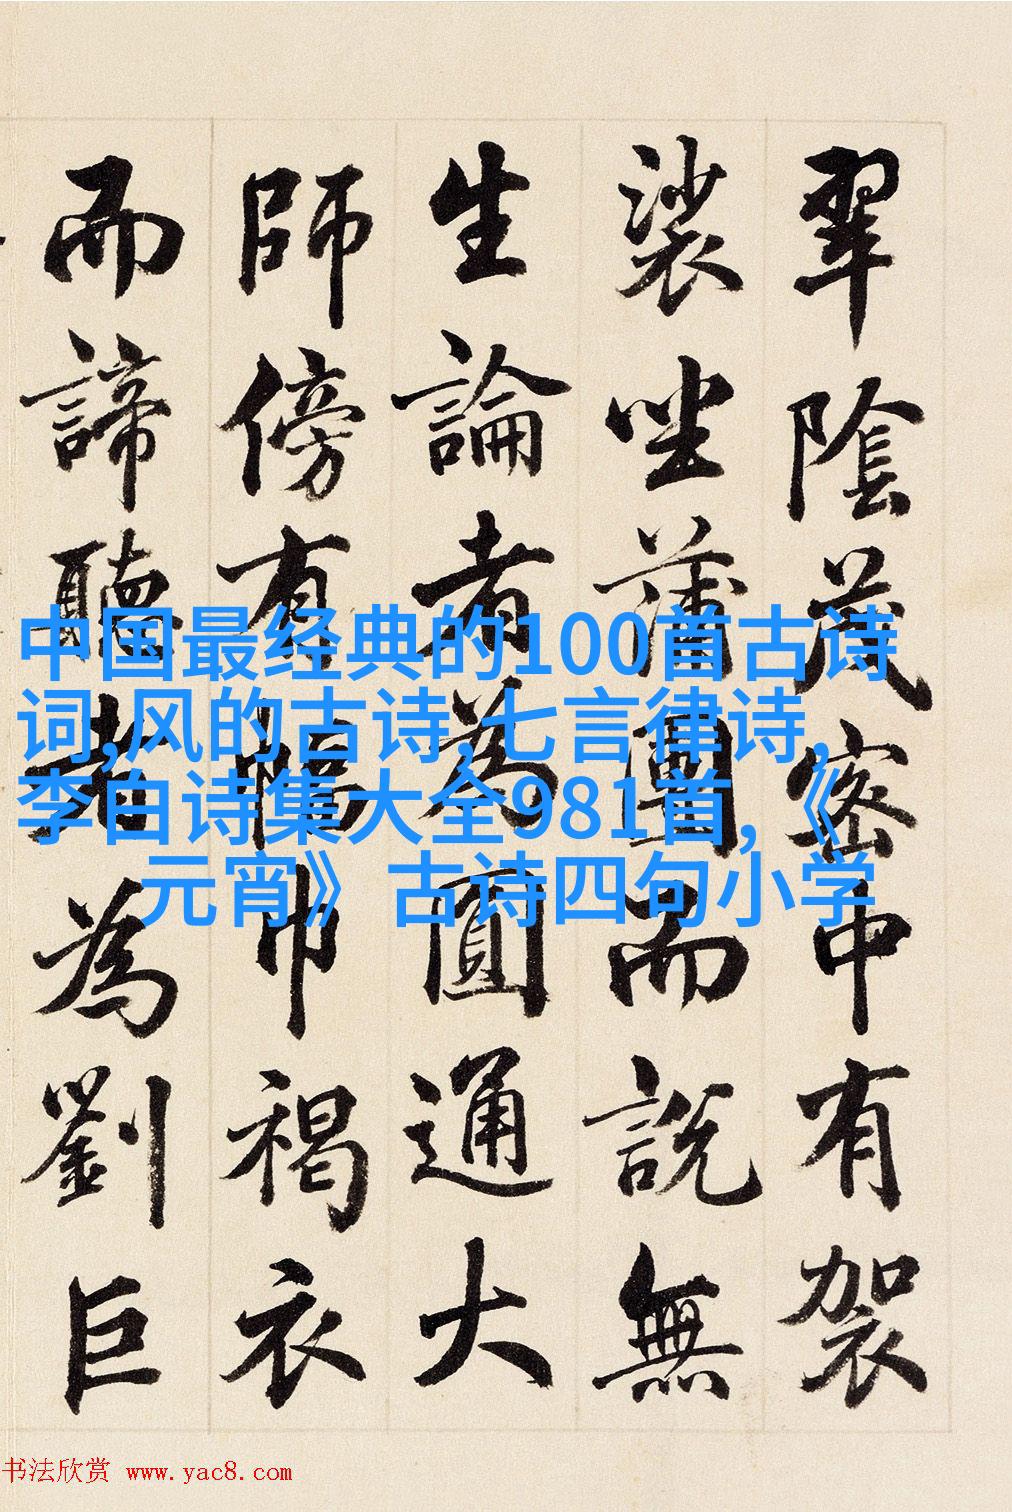 翠陰茂密中有袈
裟坐蒲團而說無
生論者為圓通大
師傍有幅巾褐衣
而諦聽者為劉巨
中国最经典的100首古诗
词,风的古诗,七言律诗,
李白诗集大全981首,《
元宵》古诗四句小学
书法欣赏 www.yac8.com